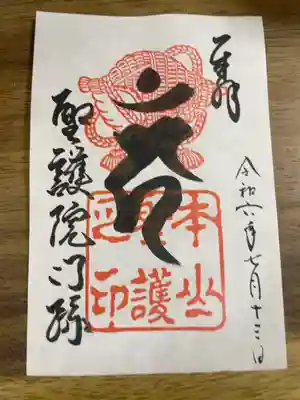 奉拝
令和六年七月十三日
本山
護
印
聖護院門跡